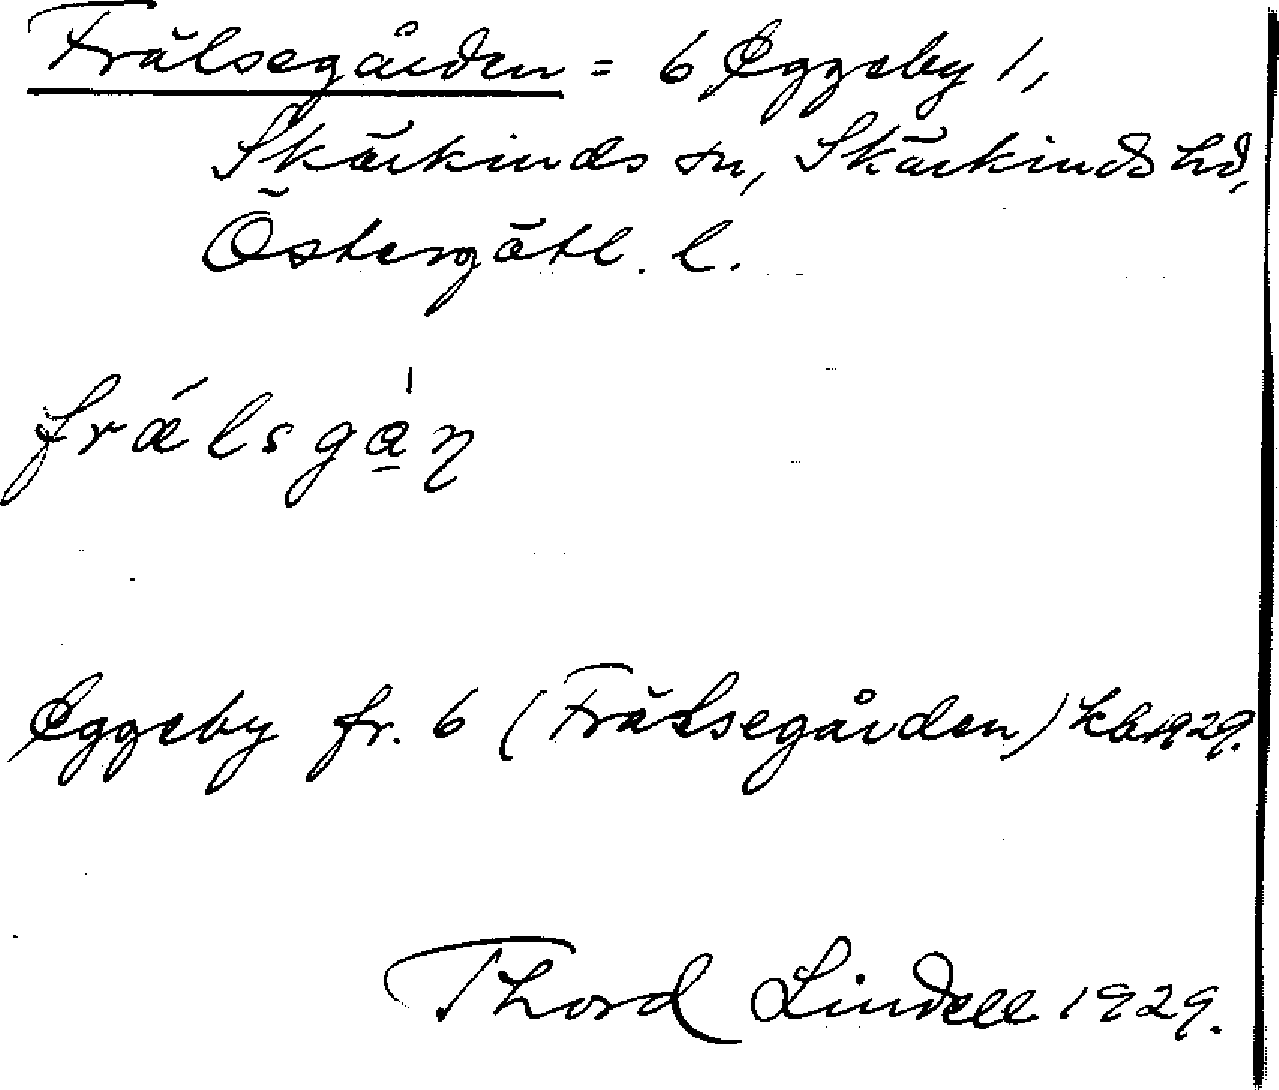 Frälsegården = 6 Eggeby 1,
Skärkinds sn, Skärkinds hd,
Östergötl. l.
frǽlsga̠̍ɳ
Eggeby fr. 6 (Frälsegården) kb 1929.
Thord Lindell 1929.